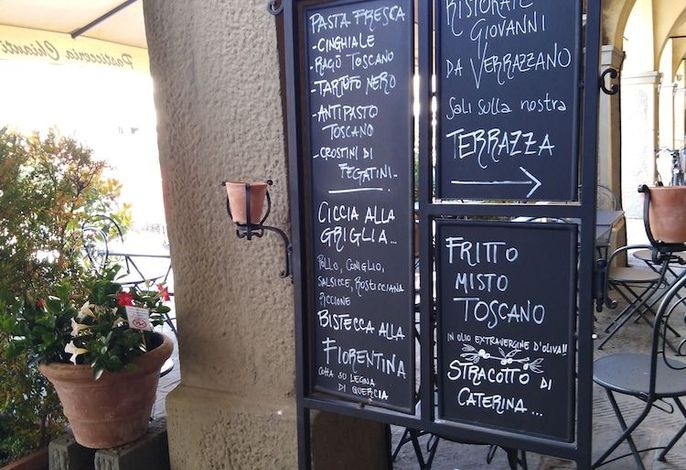 Pasticceria Chianti
PASTA FRESCA
-CINGHIALE
-RAGÒ TOSCANO
-TARTUFO NERO
-ANTIPASTO
TOSCANO
-CROSTINI DI
FEGATINI-
CICCIA ALLA
GRIGLIA...
POLLO, CONIGLIO,
SALSICCE, ROSTICCIANA
PICCIONE
BISTECCA ALLA
FIORENTINA
COTTA SU LEGNA
DI QUERCIA
RISTORATE
GIOVANNI
DA VERRAZZANO
SALI SULLA NOSTRA
TERRAZZA
FRITTO
MISTO
TOSCANO
IN OLIO EXTRAVERGINE D'OLIVA!!
STRACOTTO DI
CATERINA...